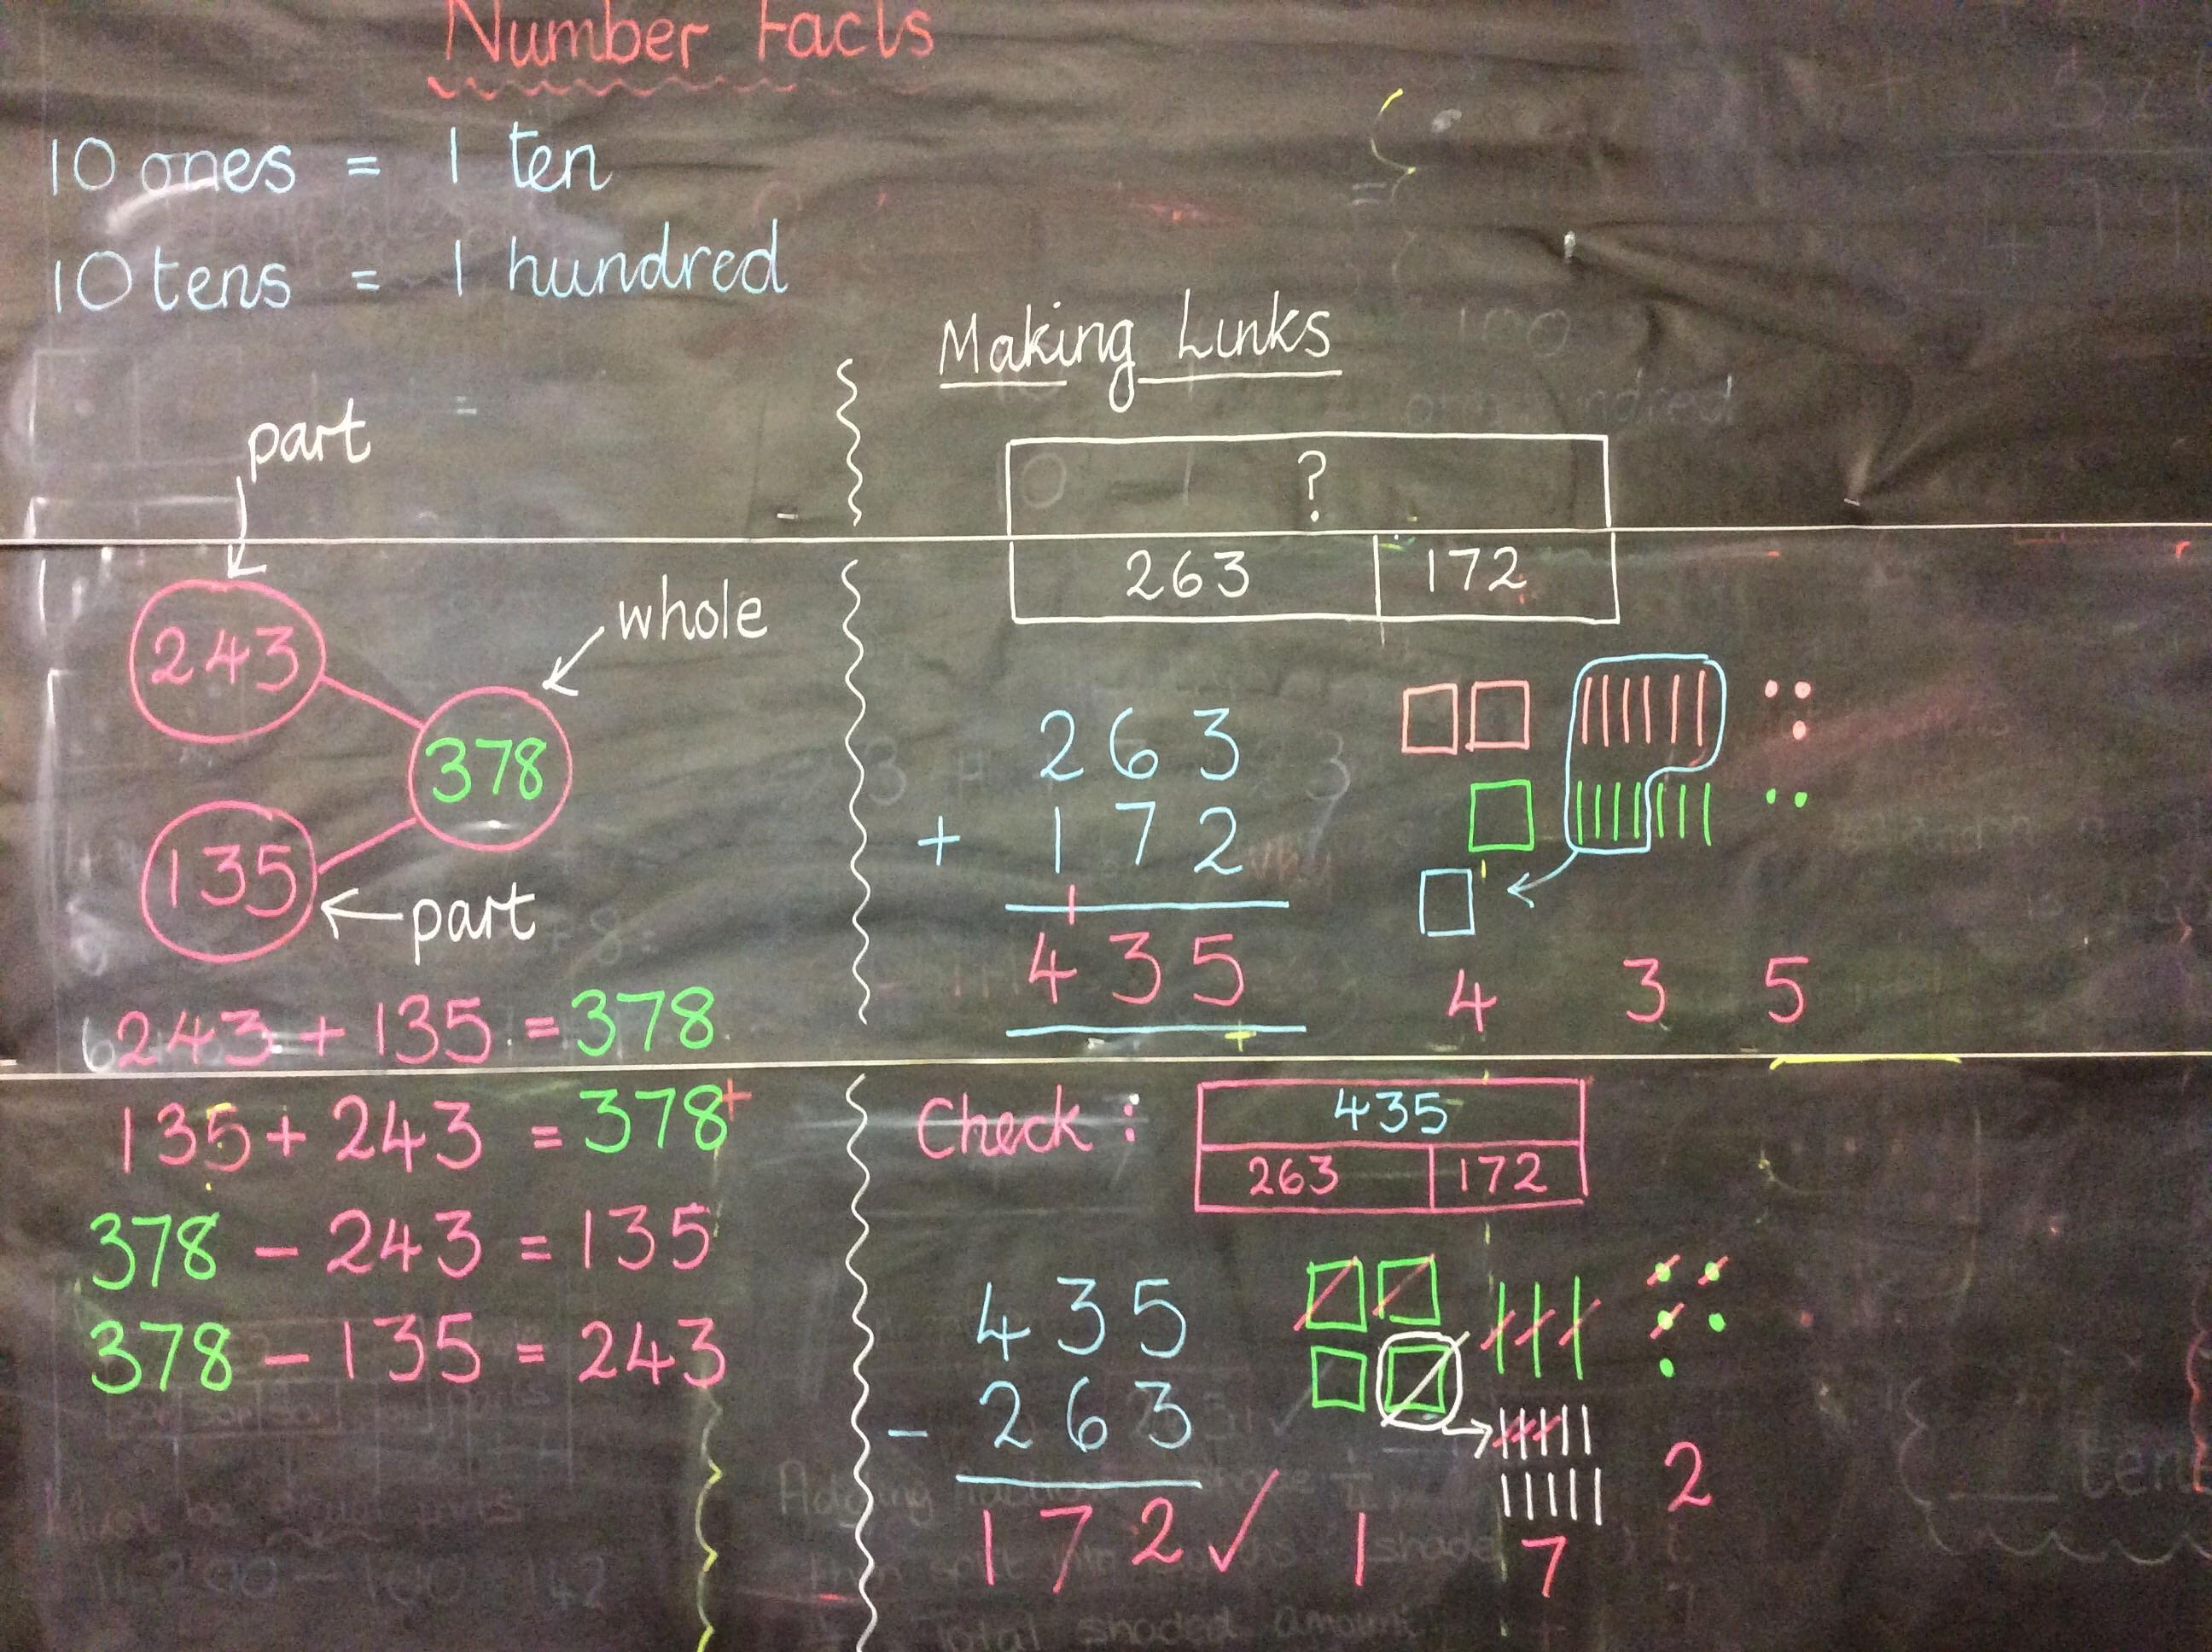 Number Facts
10 ones = 1 ten
10 tens = 1 hundred
part
243
whole
378
135
part
243 + 135 = 378
135 + 243 = 378
378 - 243 = 135
378 - 135 = 243
Making Links
?
263 172
263
+ 172
1
435
4 3 5
Check:
435
263 172
435
- 263
172 ✓
1 7 2